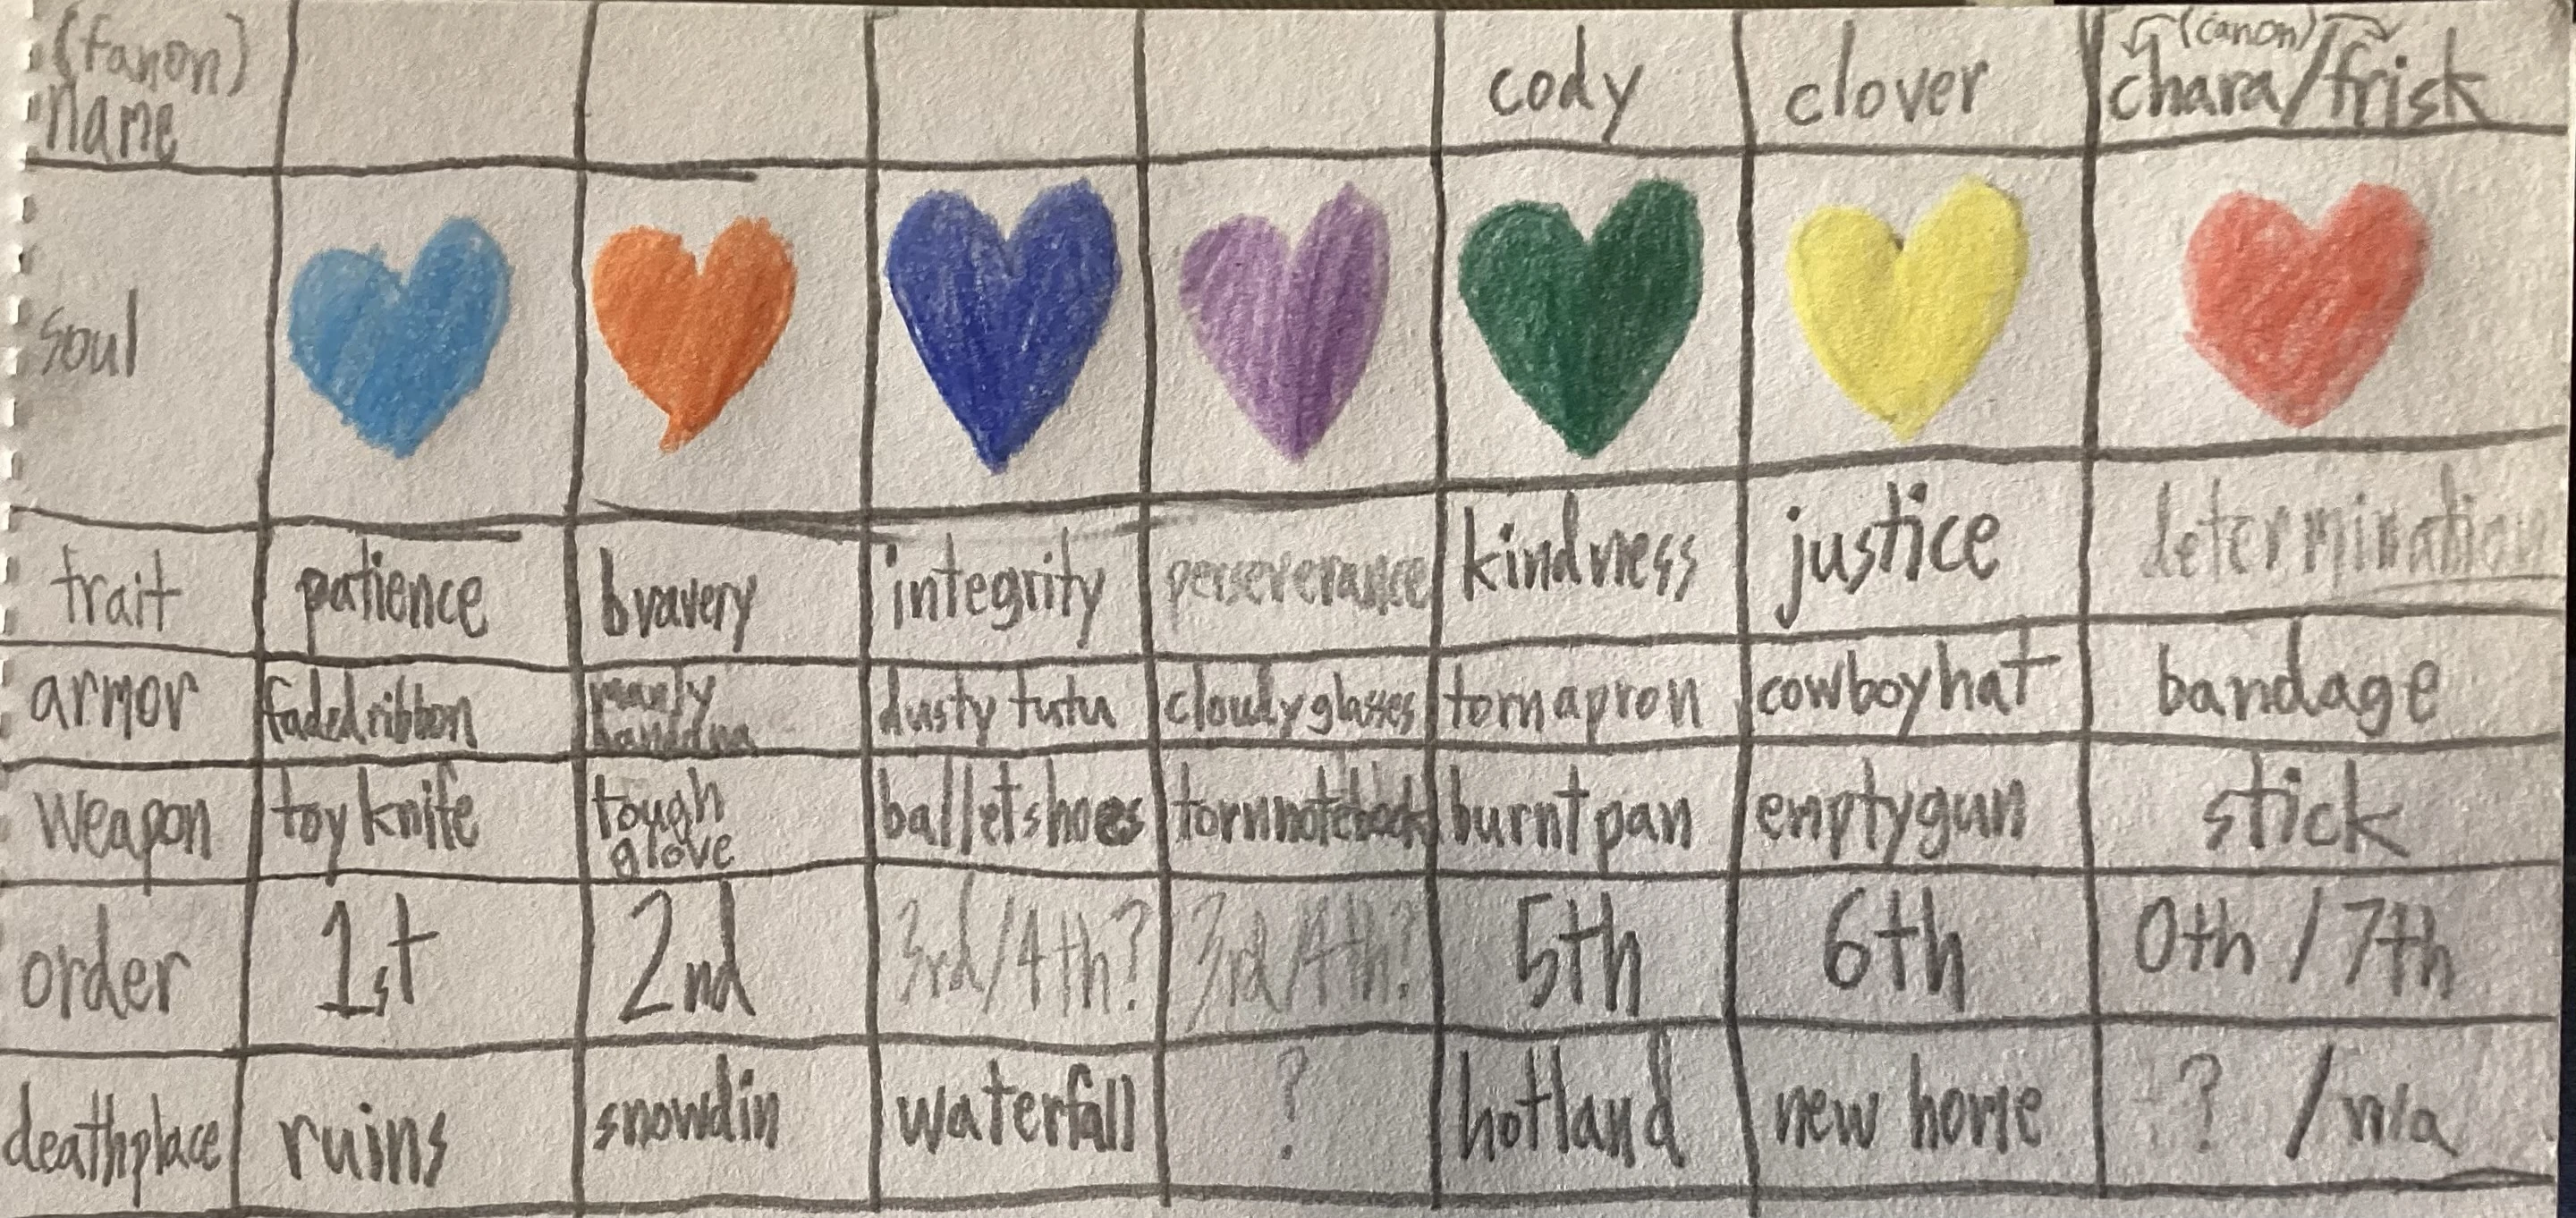 (fanon) name cody clover chara/frisk (canon)
soul
trait patience bravery integrity perseverance kindness justice determination
armor faded ribbon manly banddna dusty tutu cloudy glasses torn apron cowboy hat bandage
weapon toy knife tough glove ballet shoes torn notebook burnt pan empty gun stick
order 1st 2nd 3rd/4th? 3rd/4th? 5th 6th 0th / 7th
deathplace ruins snowdin waterfall ? hotland new home ? / n/a